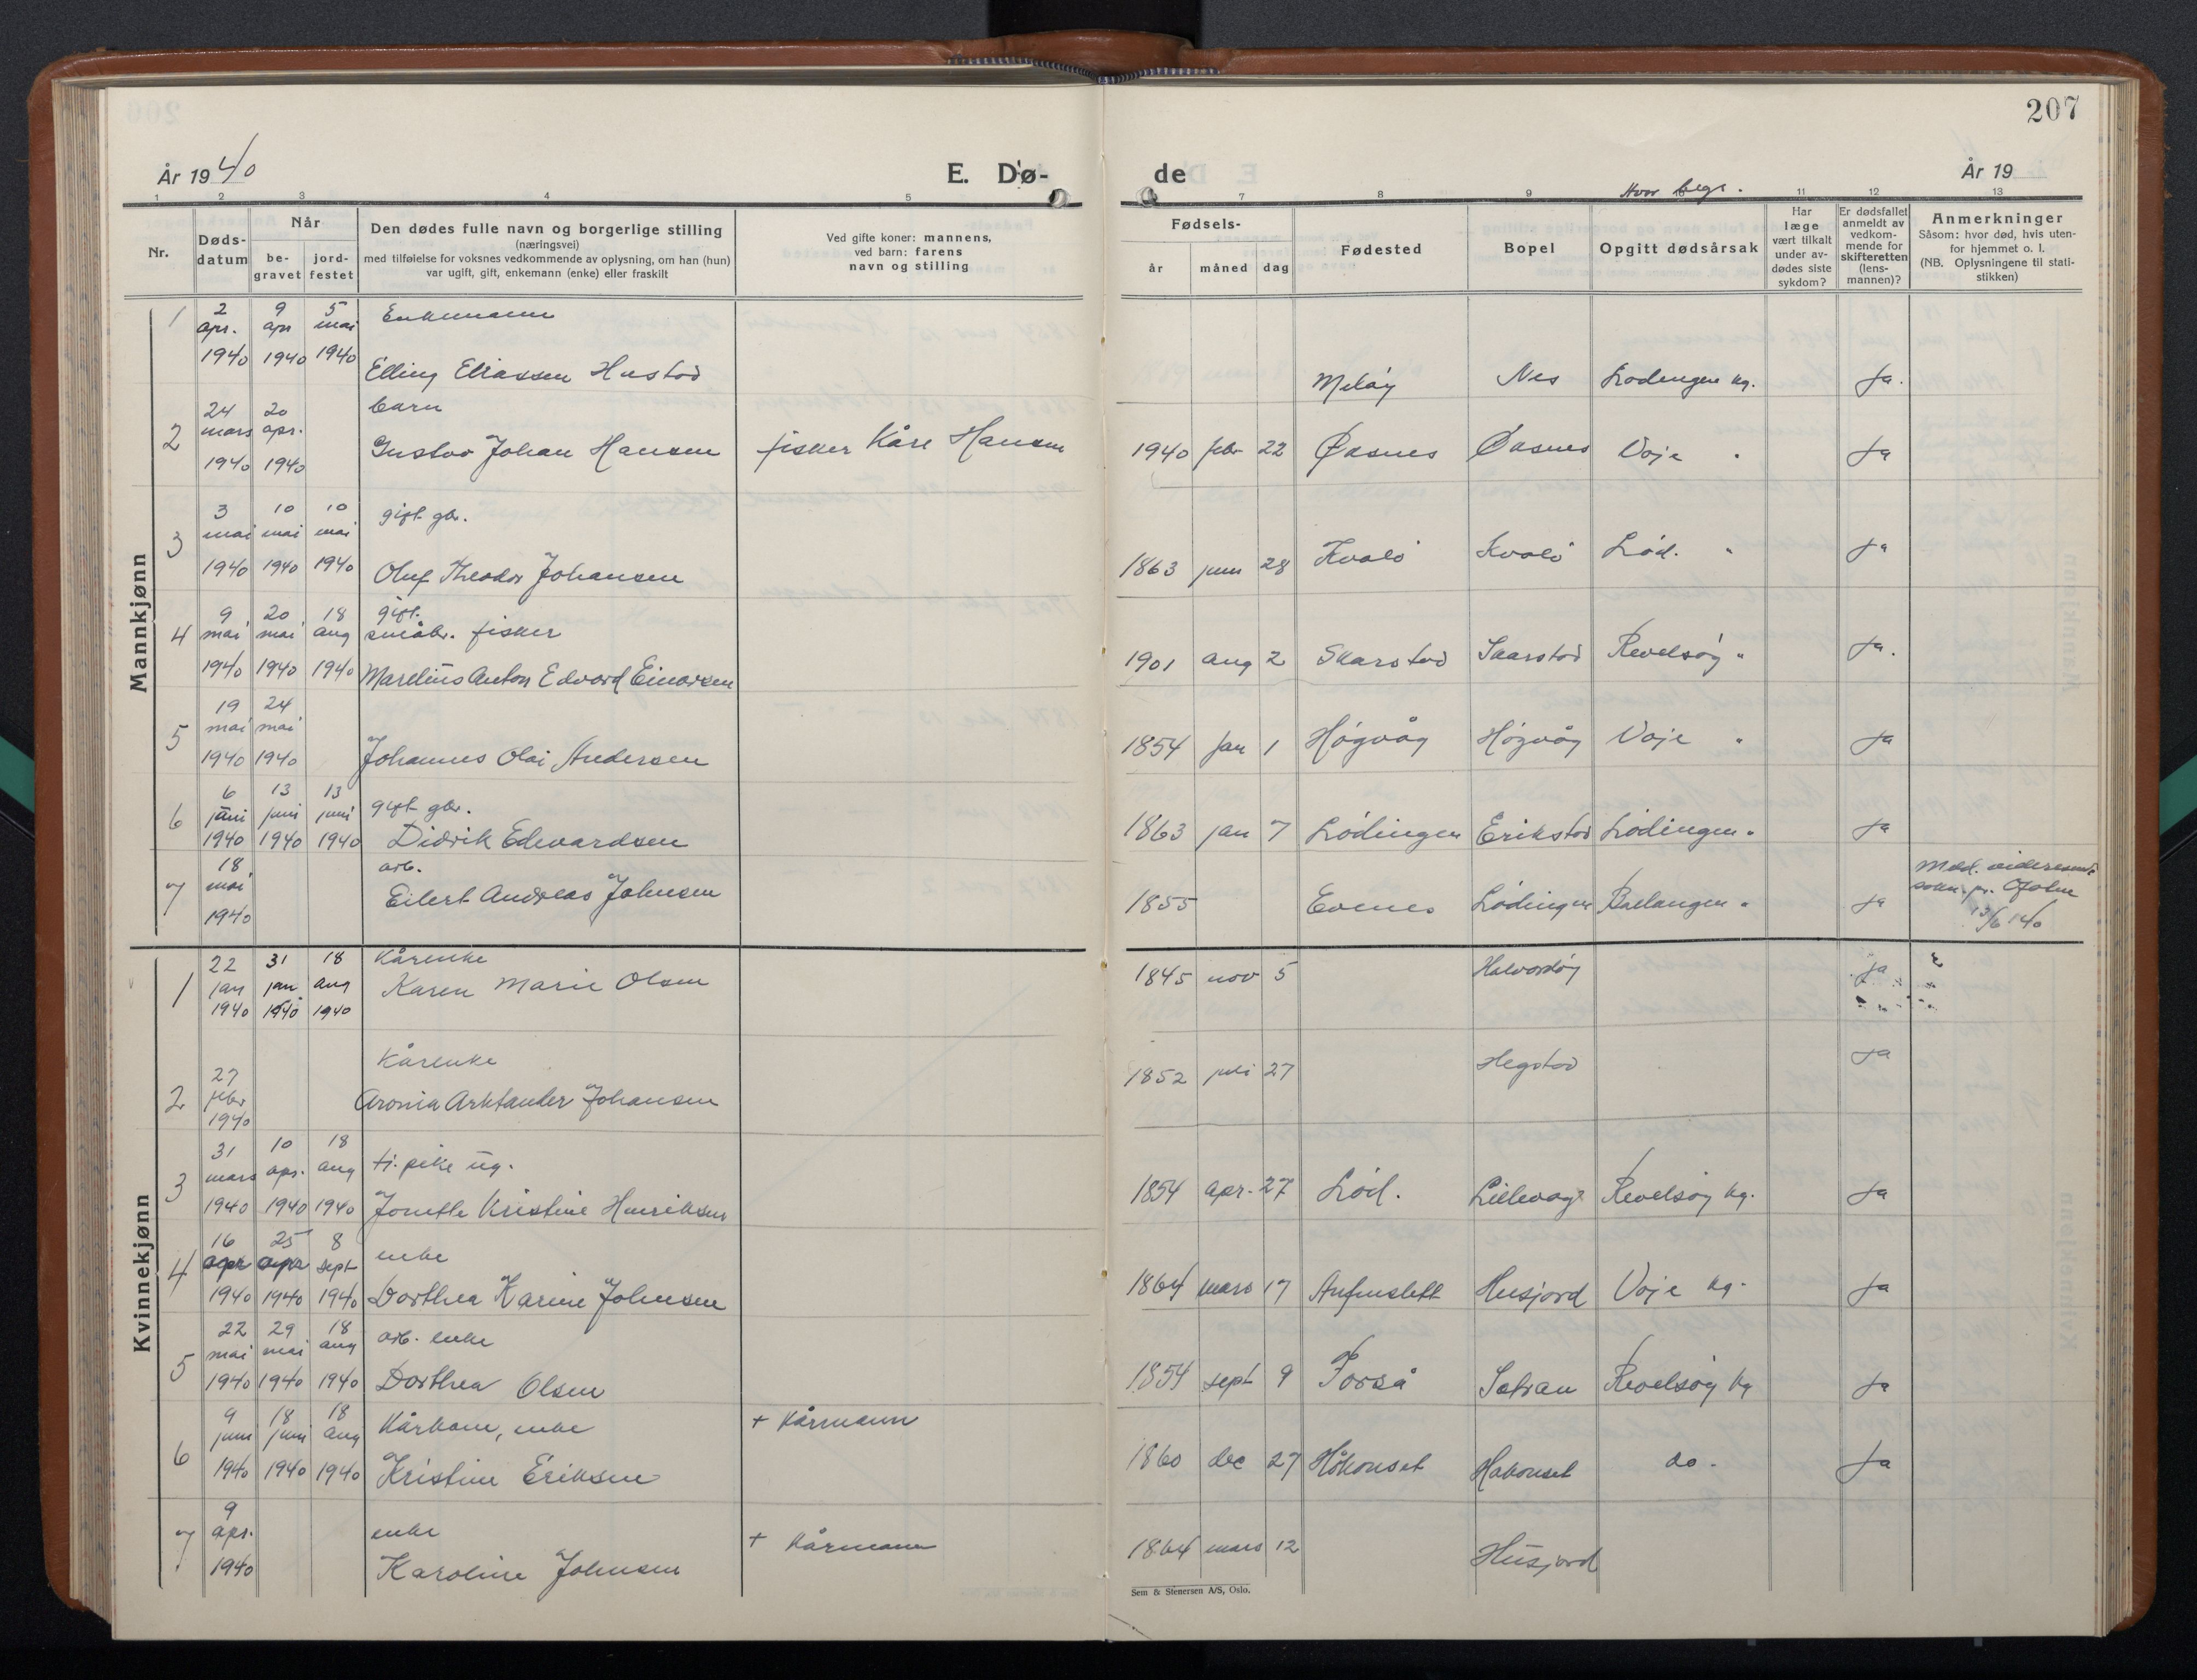 207
År 1940
E. Dø-
de
År 19
1 2 3 4 5
7 8 9 Hvor begr. 11 12 13
Nr.
Døds-
datum
Når
be-
gravet
jord-
festet
Den dødes fulle navn og borgerlige stilling
(næringsvei)
med tilføielse for voksnes vedkommende av oplysning, om han (hun)
var ugift, gift, enkemann (enke) eller fraskilt
Ved gifte koner: mannens,
ved barn: farens
navn og stilling
Fødsels-
år måned dag
Fødested
Bopel
Opgitt dødsårsak
Har
læge
vært tilkalt
under av-
dødes siste
sykdom?
Er dødsfallet
anmeldt av
vedkom-
mende for
skifteretten
(lens-
mannen)?
Anmerkninger
Såsom: hvor død, hvis uten-
for hjemmet o. l.
(NB. Oplysningene til stati-
stikken)
Mannkjønn
1 2 apr. 1940 9 apr 1940 5 mai 1940 Enkemann
Elling Eliassen Hustad Meløy Nes Lødingen kg. Ja.
2 24 mars 1940 20 apr. 1940 barn
Gustav Johan Hansen fisker Kåre Hansen 1940 febr 22 Øksnes Øksnes Voje " Ja
3 3 mai 1940 10 mai 1940 10 mai 1940 gift gbr.
Oluf Theodor Johansen 1863 juni 28 Kvalø Kvalø Lød. " Ja
4 9 mai 1940 20 mai 1940 18 aug 1940 gift.
småbr. fisker
Marelius Anton Edvard Einarsen 1901 aug 2 Skarstad Skarstad Revelsøy " Ja.
5 19 mai 1940 24 mai 1940
Johannes Olai Andersen 1854 jan 1 Høgvåg Høgvåg Voje " Ja
6 6 juni 1940 13 juni 1940 13 juni 1940 gift gbr.
Didrik Edvardsen 1863 jan 7 Lødingen Erikstad Lødingen " Ja
7 18 mai 1940 arb.
Eilert Andreas Johnsen 1855 Evenes Lødingen Ballangen " Ja
Med. videresendt
sokn.pr. Ofoten
13/6 40
Kvinnekjønn
1 22 jan 1940 31 jan 1940 18 aug 1940 Kårenke
Karen Marie Olsen 1845 nov 5 Halvardøy Ja
2 27 febr 1940 Kårenke
Aronia Arktander Johansen 1852 juli 27 Hegstad Ja
3 31 mars 1940 10 apr. 1940 18 aug 1940 tj. pike ug.
Jonette Kristine Henriksen 1854 apr. 27 Lød. Lillevag Revelsøy kg. Ja
4 16 apr 1940 25 apr 1940 8 sept 1940 enke
Dorthea Karine Johnsen 1864 mars 17 Husjord Voje kg. Ja
5 22 mai 1940 29 mai 1940 18 aug 1940 arb. enke
Dorthea Olsen 1854 sept 9 Forså Revelsøy kg Ja
6 9 juni 1940 18 juni 1940 18 aug 1940 Kårkone, enke + Kårmann
Kristine Eriksen 1860 dec 27 Håkonset Hakonset do. Ja
7 9 apr. 1940 enke + Kårmann
Karoline Johnsen 1864 mars 12 Husjord
Sem & Stenersen A/S, Oslo.